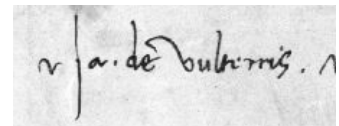 Ja. de vulterris.